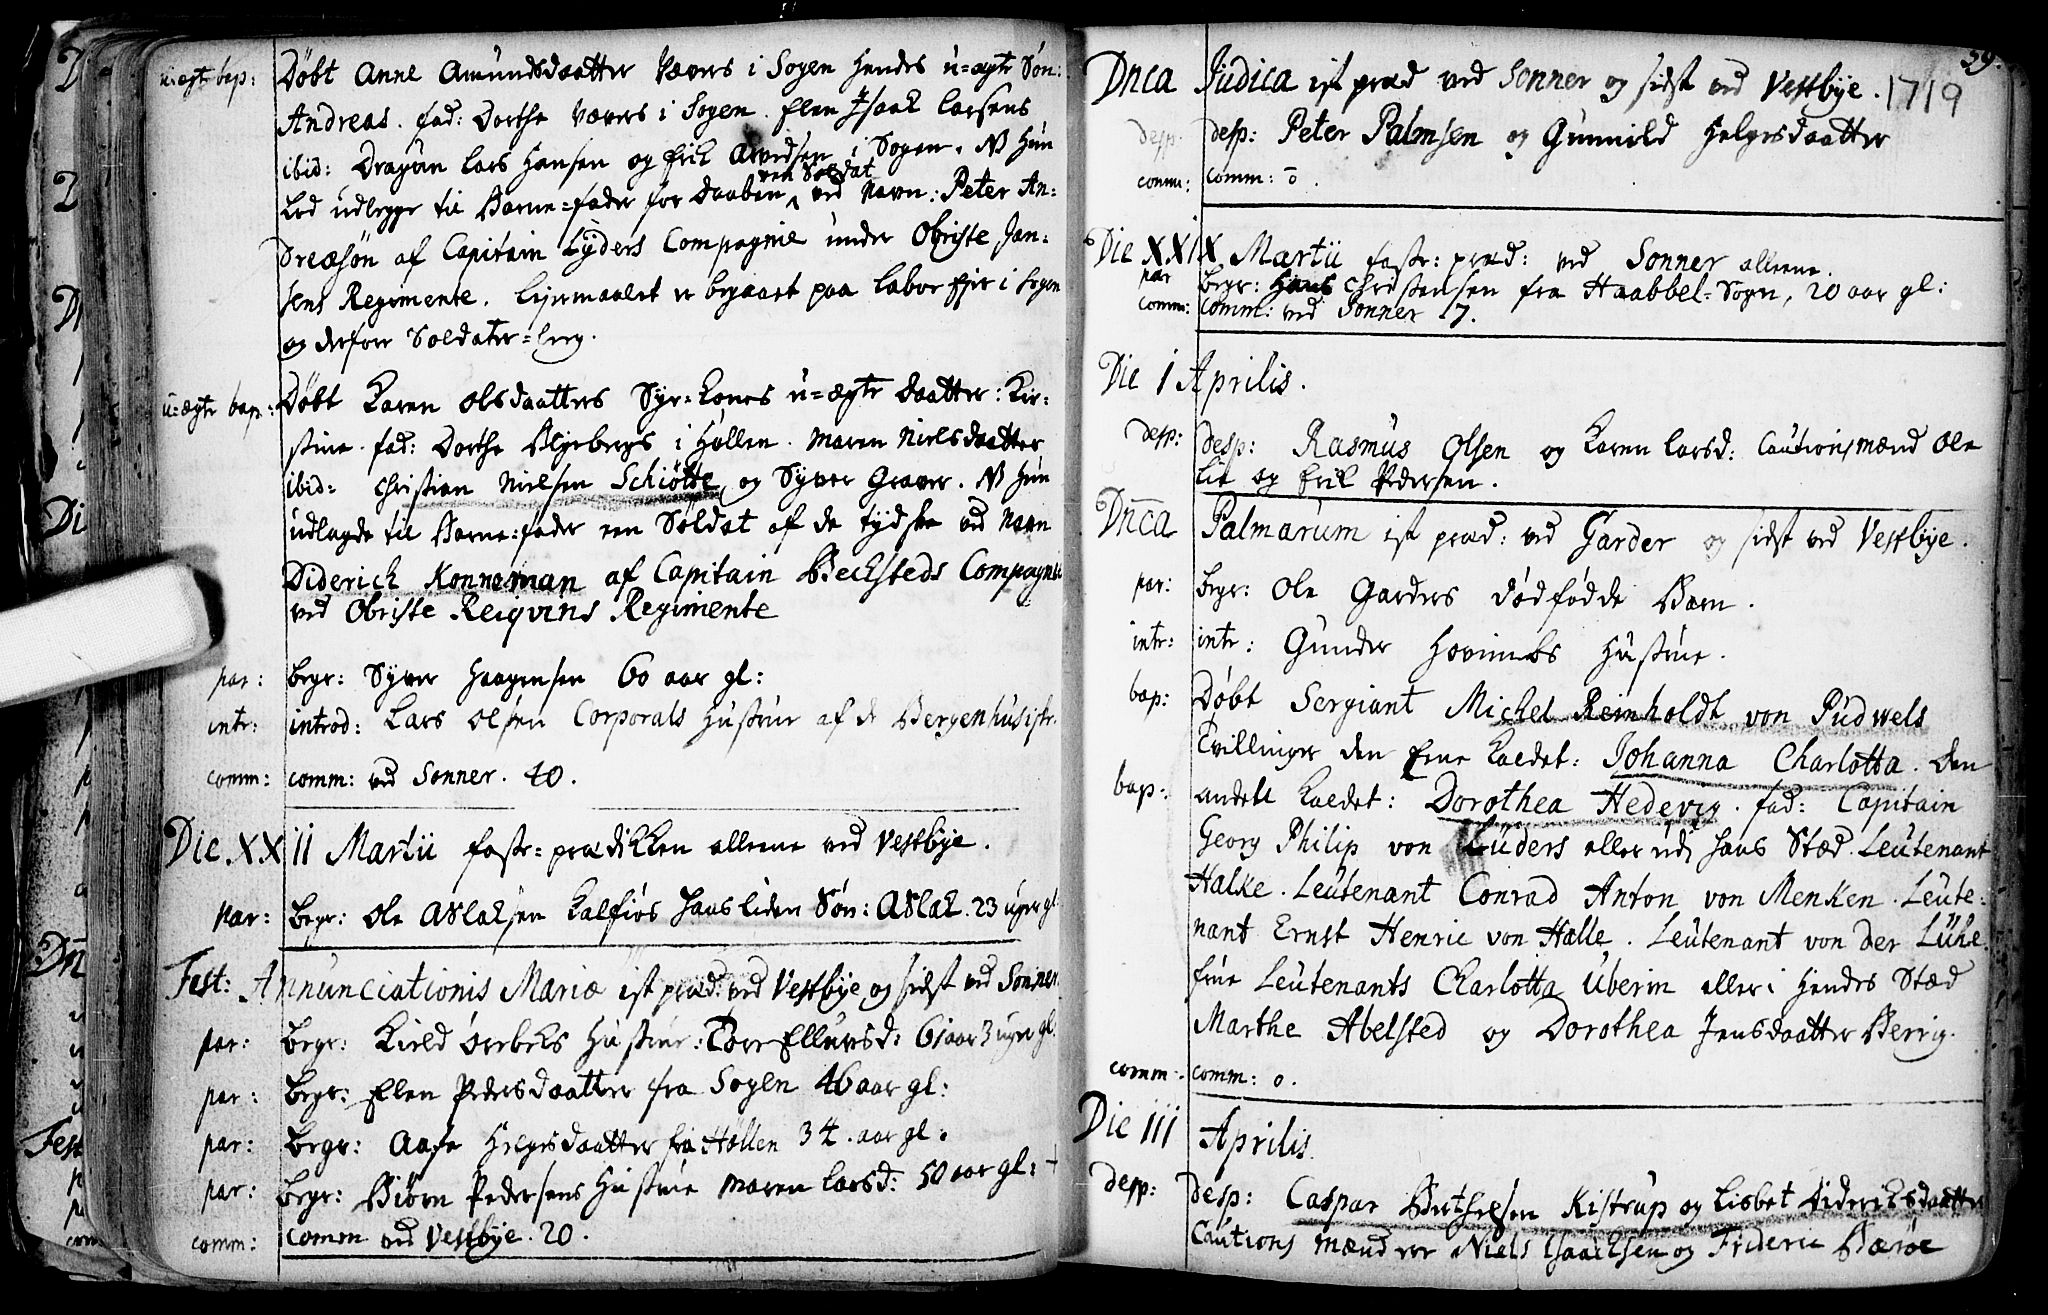 u-ægte bap: Døbt Anne Amundsdaatter Vævers i Sogen hendes u=ægte Søn:
Andreas. fad: Dorthe Vævers i Sogen. Elen Isaak Larsens
ibid: Dragün Lars Hansen og Erik Arvidsen i Sogen. NB hun
lod udlegge til Barne=fader for Daaben en Soldat ved Navn: Peter An=
dreæsøn af Capitain Lÿders Compagnie under Obriste Jan=
sens Regimente. Leyermaalet er begaaet paa Labor Eyer i Sogen
og derfore Soldater=
u=ægte bap: Døbt Karen Olsdaatters Sye=Kones u=ægte Daatter: Kir=
stine. fad: Dorthe Blyebergs i Hollen. Maren Nielsdaatter
ibid= Christian Nielsen Schiötte og Syver Graver. NB hun
udlagde til Barne=fader een Soldat af de tydske ved Navn
Diderich Konneman af Capitain Becksteds Compagnie
ved Obriste Reiqvins Regimente
par: begr: Syver Haagensen 60 aar gl:
intr: introd: Lars Olsen Corporals Hustrue af de Bergenhusiske
comm: comm: ved Sonner. 40.
Die XXII Martii faste=prædikken alleene ved Vestbÿe.
par: begr: Ole Aslaksen Kalfiøs hans liden Søn: Aslak. 23 uger gl.
Fest: Annunciationis Mariæ ist præd: ved Vestbÿe og sidst ved Sonner.
par: begr: Kield Örebeks Hustrue: Tore Ellevsd: 61 aar 3 uger gl.
par: begr: Elen Pedersdaatter fra Sogen 46 aar gl:
par: begr: Aase Helgesdaatter fra Hollen 34. aar gl:
par: begr: Biørn Pedersens Hustrue Maren Larsd: 50 aar gl:
comm: comm ved Vestbÿe. 20.
39.
Dnca Judica ist præd ved Sonner og sidst ved Vestbÿe. 1719
desp. desp: Peter Palmsen og Gunnild Helgesdaatter
comm: comm: o.
Die XXIX Martii faste=præd: ved Sonner alleene.
par begr: Hans Christensen fra Haabbel=Sogn, 20 aar gl:
comm: comm: ved Sonner 17.
Die I Aprilis.
desp: desp: Rasmus Olsen og Karen Larsd: Cautionsmænd Ole
Lie og Erik Pedersen.
Dnca Palmarum ist præd: ved Garder og sidst ved Vestbÿe.
par: begr: Ole Garders dødfødde Barn.
intr: intr: Gunder Hovimbs Hustrue.
bap: Døbt Sergiant Michel Reinholdt von Püdwels
Tvillinger den Eene kaldet: Johanna Charlotta. Den
bap: andell kaldet: Dorothea Hedevig. fad: Capitain
Georg Philip von Lüders eller udi hans Stæd. Leutenant
Halke. Leutenant Conrad Anton von Menken. Leute=
nant Ernst Henric von Halle. Leutenant von der Lühe.
frue Leutenants Charlotta Uberin eller i hendes Stæd
Marthe Abelsted og Dorothea Jensdaatter Berrig.
comm. comm: o.
Die III Aprilis.
desp: desp: Caspar Berthelsen Kistrup og Lisbet Dideriksdaatter
Cautions mænd ere Niels Isaachsen og Frideric Bærøe